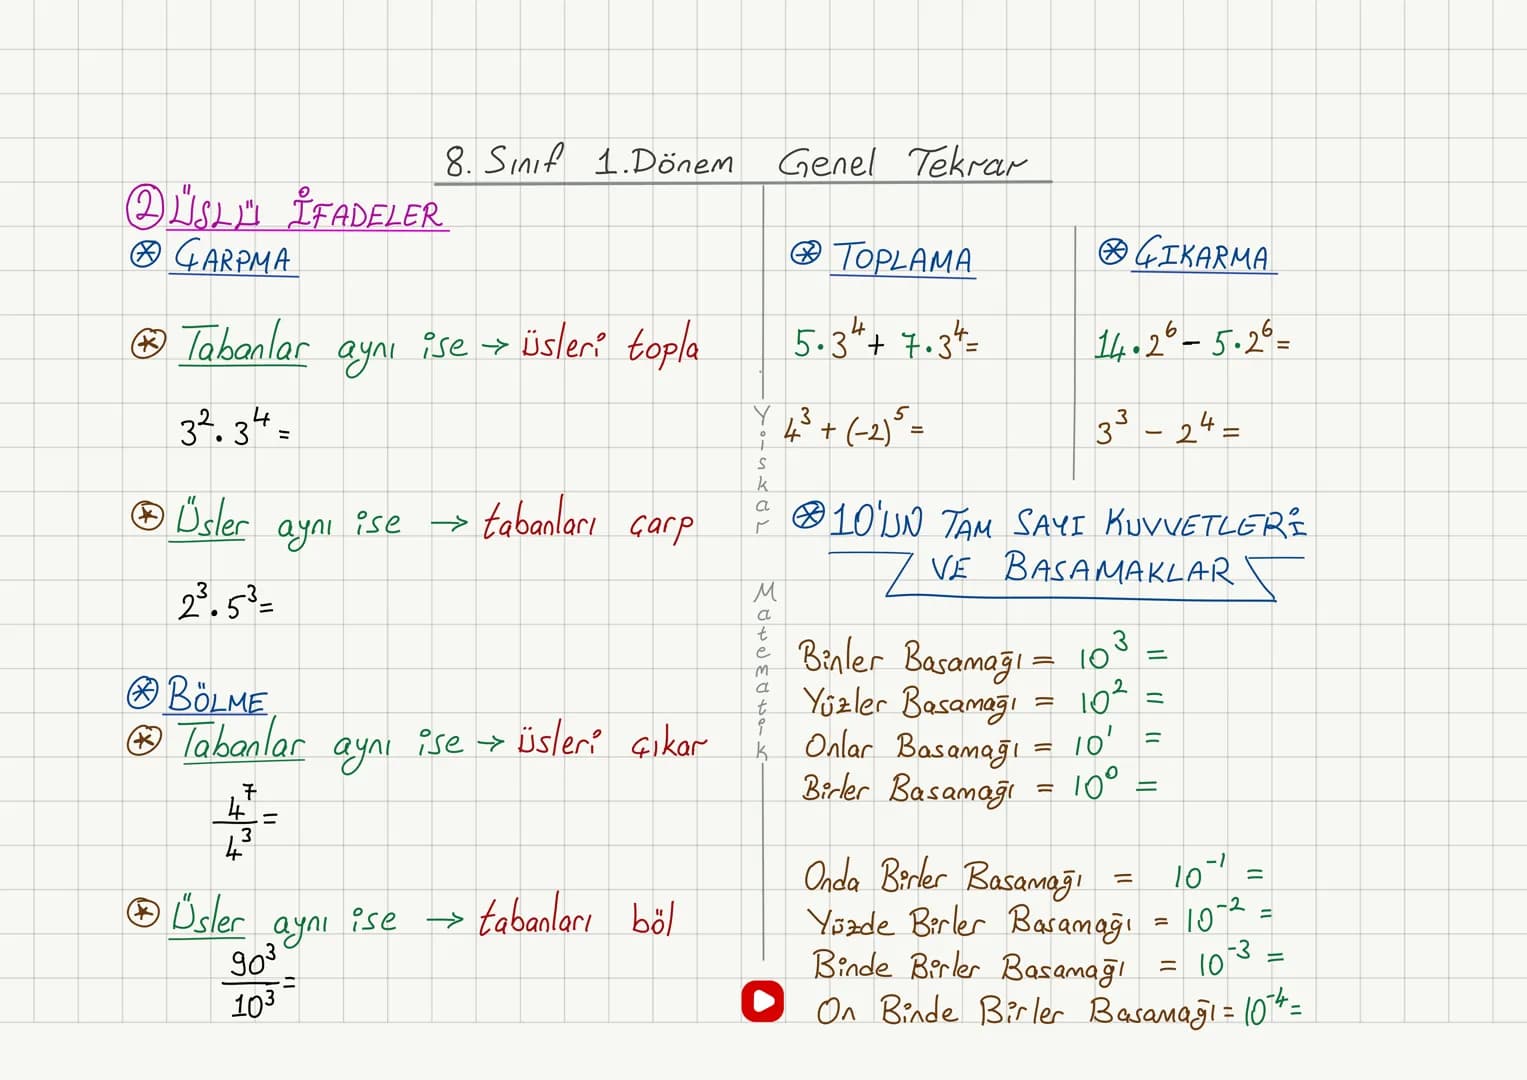 8. Sınıf 1.Dönem Genel Tekrar
② ÜSLÜ İFADELER
⊛ ÇARPMA
⊛ Tabanlar aynı ise → üsleri topla
3². 3⁴ =
⊛ Üsler aynı ise → tabanları çarp
2³. 5³=
⊛ BÖLME
⊛ Tabanlar aynı ise → üsleri çıkar
4⁷/4³ =
⊛ Üsler aynı ise → tabanları böl
90³/10³ =
Yiskar Matematik
⊛ TOPLAMA
5.3⁴ + 7.3⁴=
4³ + (-2)⁵ =
⊛ ÇIKARMA
14.2⁶ - 5.2⁶ =
3³ - 2⁴ =
⊛ 10'UN TAM SAYI KUVVETLERİ
VE BASAMAKLAR
Binler Basamağı = 10³ =
Yüzler Basamağı = 10² =
Onlar Basamağı = 10¹ =
Birler Basamağı = 10⁰ =
Onda Birler Basamağı = 10⁻¹ =
Yüzde Birler Basamağı = 10⁻² =
Binde Birler Basamağı = 10⁻³ =
On Binde Birler Basamağı = 10⁻⁴ =